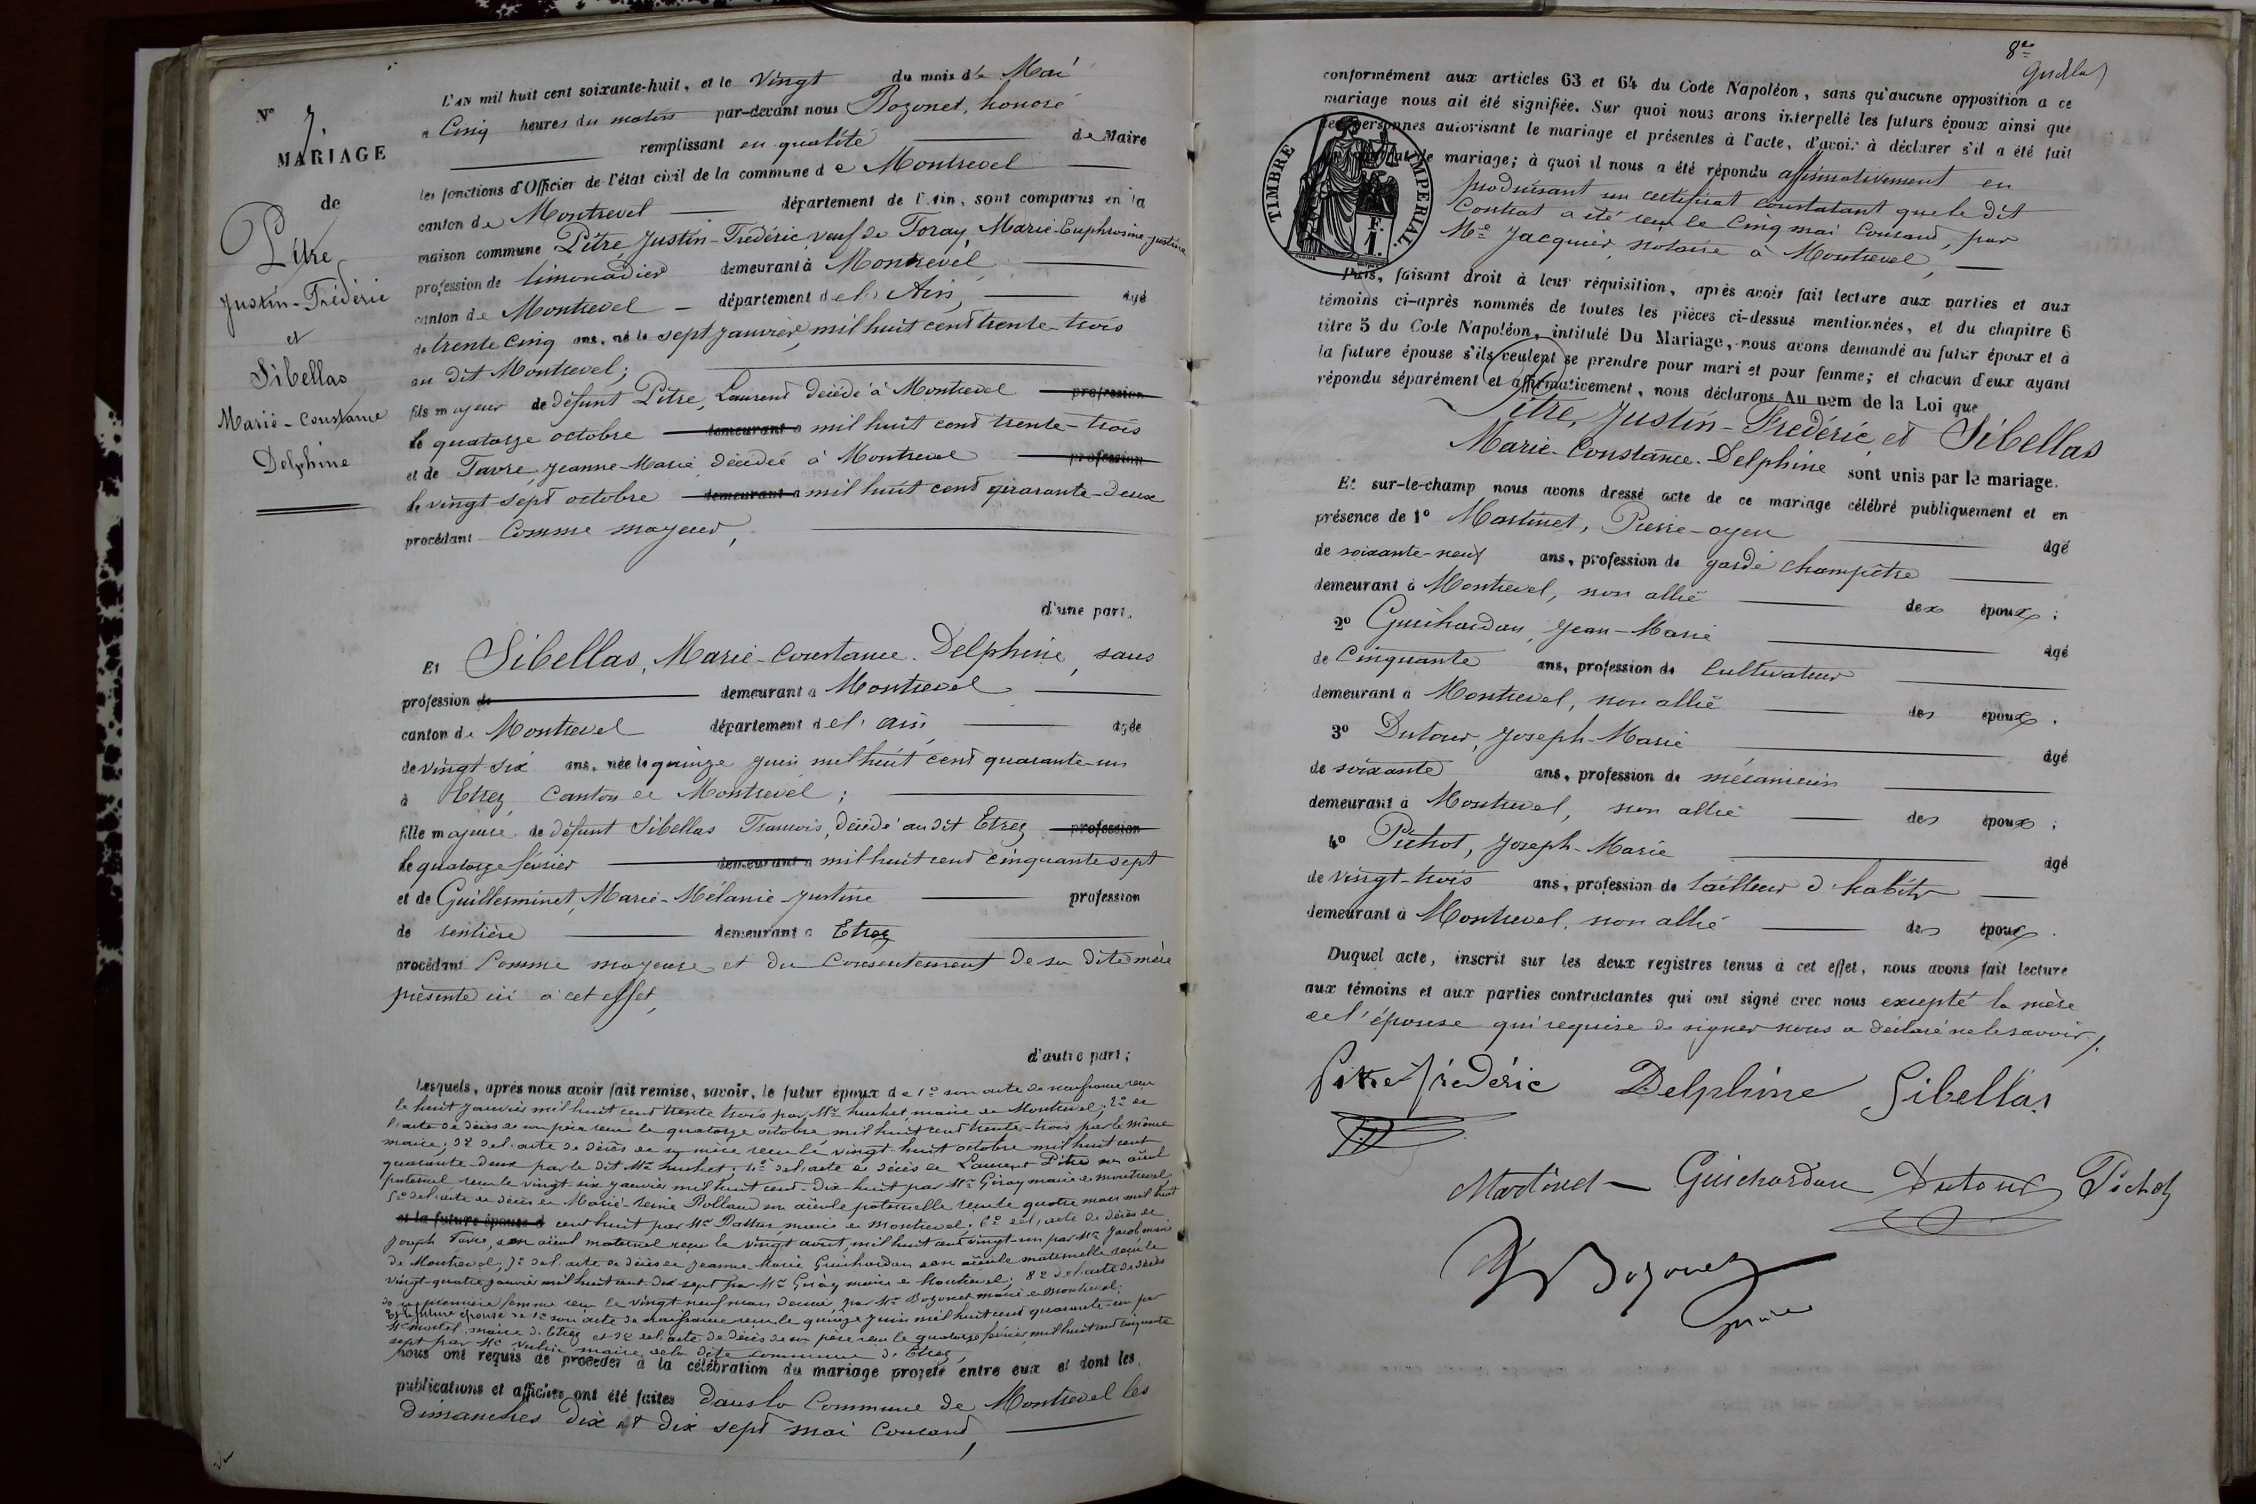 N° 7.
MARIAGE
de
Pitre
Justin-Frédéric
et
Sibellas
Marie-Constance
Delphine
L'AN mil huit cent soixante-huit, et le Vingt du mois de Mai
à Cinq heures du matin par-devant nous Bozonet, honoré
remplissant en qualité de Maire
les fonctions d'Officier de l'état civil de la commune de Montrevel
canton de Montrevel département de l'Ain, sont comparus en la
maison commune Pitre, Justin-Frédéric, veuf de Foray, Marie-Euphrosine-Justine
profession de limonadier demeurant à Montrevel
canton de Montrevel département de l'Ain, âgé
de trente cinq ans, né le sept janvier mil huit cent trente-trois
au dit Montrevel;
fils majeur de défunt Pitre, Laurent décédé à Montrevel profession
le quatorze octobre demeurant à mil huit cent trente-trois
et de Favre, Jeanne-Marie décédée à Montrevel profession
le vingt-sept octobre demeurant à mil huit cent quarante-deux
procédant comme majeur,
d'une part.
Et Sibellas, Marie-Constance-Delphine, sans
profession de demeurant à Montrevel
canton de Montrevel département de l'Ain, âgée
de vingt-six ans, née le quinze juin mil huit cent quarante-un
à Etrez canton de Montrevel;
fille majeure de défunt Sibellas François, décédé au dit Etrez profession
le quatorze février demeurant à mil huit cent cinquante sept
et de Guillerminet, Marie-Mélanie-Justine profession
de rentière demeurant à Etrez
procédant comme majeure et du consentement de sa dite mère
présente ici à cet effet,
d'autre part;
Lesquels, après nous avoir fait remise, savoir, le futur époux de 1° son acte de naissance reçu
le huit janvier mil huit cent trente trois par Mr huchet maire de Montrevel; 2° de
l'acte de décès de son père reçu le quatorze octobre mil huit cent trente-trois par le même
maire; 3° de l'acte de décès de sa mère reçu le vingt-huit octobre mil huit cent
quarante-deux par le dit Mr huchet; 4° de l'acte de décès de Laurent Pitre son aïeul
paternel reçu le vingt-six janvier mil huit cent-dix-huit par Mr Giroy maire de Montrevel;
5° de l'acte de décès de Marie-Reine Rolland son aïeule paternelle reçu le quatre mars mil huit
et la future épouse d cent huit par Mr maire de Montrevel. 6° de l'acte de décès de
Joseph Favre, son aïeul maternel reçu le vingt août, mil huit cent vingt-un par Mr Jacob maire
de Montrevel; 7° de l'acte de décès de Jeanne-Marie Guichardan son aïeule maternelle reçu le
vingt-quatre janvier mil huit cent dix-sept par Mr Giroy maire de Montrevel; 8° de l'acte de décès
de sa première femme reçu le vingt-neuf mars dernier, par Mr Bozonet maire de Montrevel;
Et la future épouse de 1° son acte de naissance reçu le quinze juin mil huit cent quarante-un par
Mr maire d'Etrez et 2° de l'acte de décès de son père reçu le quatorze février mil huit cent cinquante
sept par Mr maire de la dite commune d'Etrez,
nous ont requis de procéder à la célébration du mariage projeté entre eux et dont les
publications et affiches ont été faites dans la Commune de Montrevel les
dimanches dix et dix sept mai courant,
8e
conformément aux articles 63 et 64 du Code Napoléon, sans qu'aucune opposition à ce
mariage nous ait été signifiée. Sur quoi nous avons interpellé les futurs époux ainsi que
les personnes autorisant le mariage et présentes à l'acte, d'avoir à déclarer s'il a été fait
contrat de mariage; à quoi il nous a été répondu affirmativement en
produisant un certificat constatant que le dit
contrat a été reçu le cinq mai courant, par
Me Jacquier, notaire à Montrevel,
TIMBRE IMPÉRIAL.
1 F.
Puis, faisant droit à leur réquisition, après avoir fait lecture aux parties et aux
témoins ci-après nommés de toutes les pièces ci-dessus mentionnées, et du chapitre 6
titre 5 du Code Napoléon, intitulé Du Mariage, nous avons demandé au futur époux et à
la future épouse s'ils veulent se prendre pour mari et pour femme; et chacun d'eux ayant
répondu séparément et affirmativement, nous déclarons Au nom de la Loi que
Pitre, Justin-Frédéric et Sibellas
Marie-Constance-Delphine sont unis par le mariage.
Et sur-le-champ nous avons dressé acte de ce mariage célébré publiquement et en
présence de 1° Martinet, Pierre-oyen âgé
de soixante-neuf ans, profession de garde champêtre
demeurant à Montrevel, non allié des époux;
2° Guichardan, Jean-Marie âgé
de cinquante ans, profession de cultivateur
demeurant à Montrevel, non allié des époux.
3° Dutour, Joseph-Marie âgé
de soixante ans, profession de mécanicien
demeurant à Montrevel, non allié des époux;
4° Pichot, Joseph-Marie âgé
de vingt-trois ans, profession de tailleur d'habits
demeurant à Montrevel, non allié des époux.
Duquel acte, inscrit sur les deux registres tenus à cet effet, nous avons fait lecture
aux témoins et aux parties contractantes qui ont signé avec nous excepté la mère
de l'épouse qui requise de signer nous a déclaré ne le savoir./.
Pitre frédéric Delphine Sibellas
Martinet Guichardan Dutour Pichot
Bozonet
maire